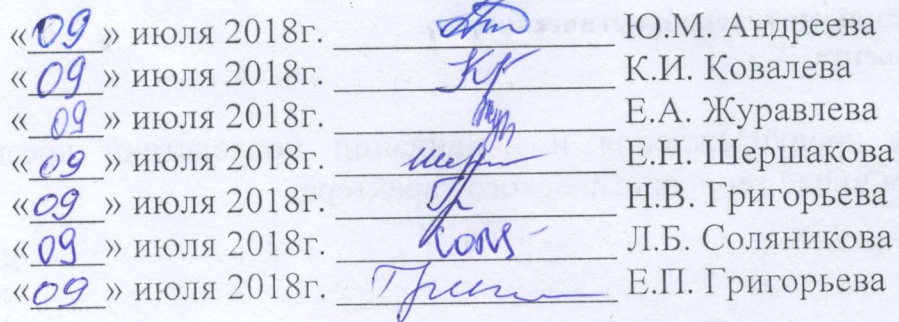 «09» июля 2018г. Ю.М. Андреева
«09» июля 2018г. К.И. Ковалева
«09» июля 2018г. Е.А. Журавлева
«09» июля 2018г. Е.Н. Шершакова
«09» июля 2018г. Н.В. Григорьева
«09» июля 2018г. Л.Б. Соляникова
«09» июля 2018г. Е.П. Григорьева